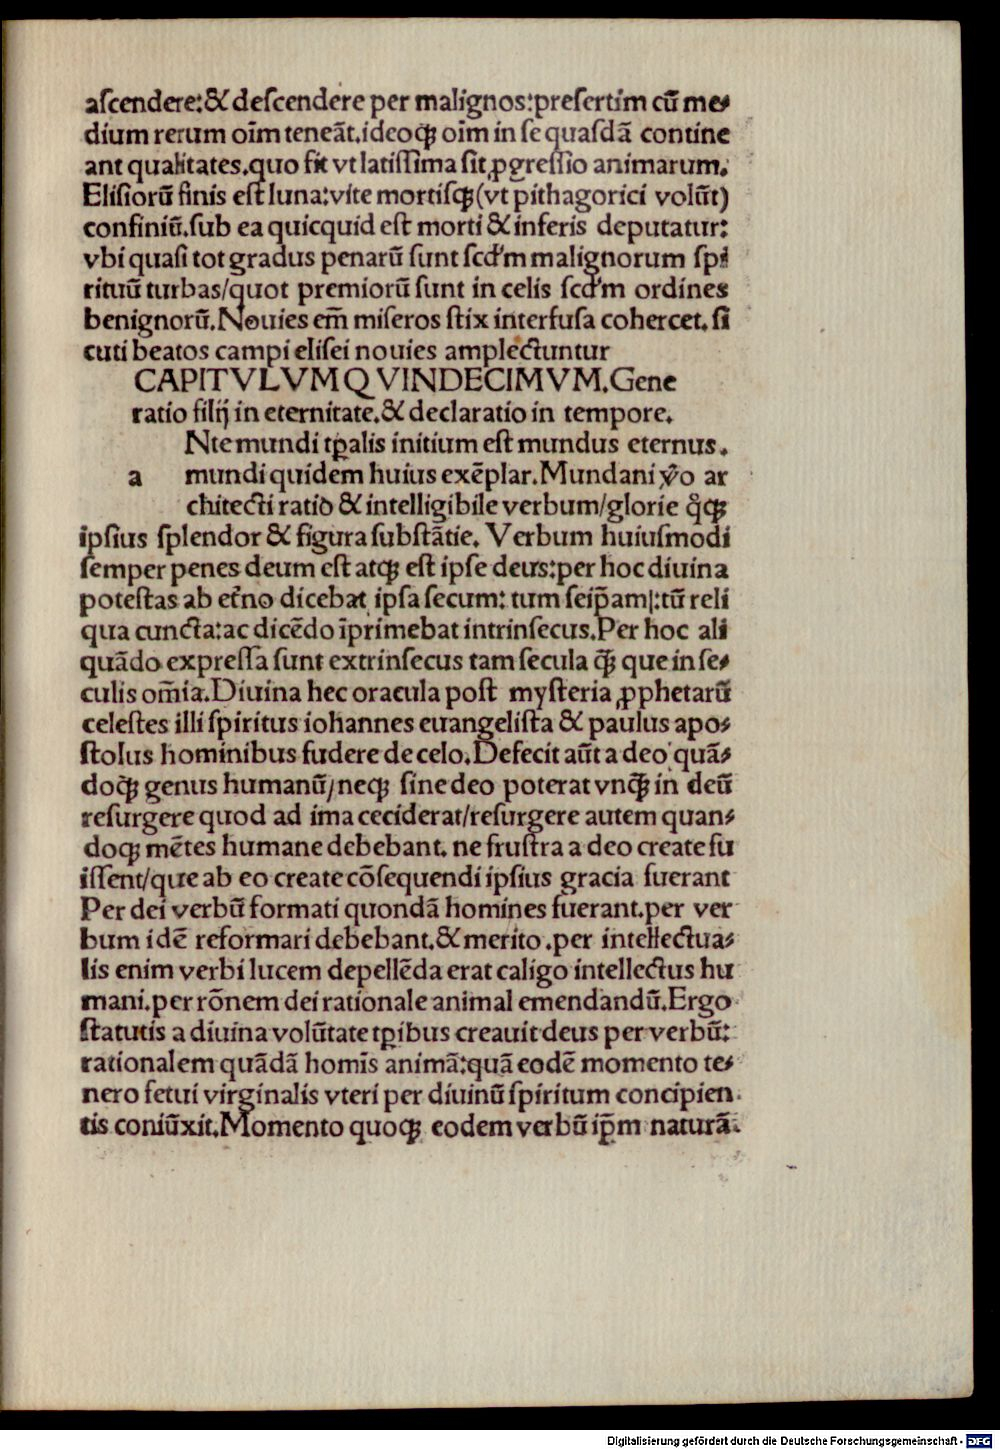 aſcendere:& deſcendere per malignos:preſertim cū me⸗
dium rerum oīm teneāt.ideoqꝫ oīm in ſe quaſdā contine
ant qualitates.quo fit vt latiſſima ſit ꝓgreſſio animarum.
Eliſiorū finis eſt luna:vite mortiſqꝫ(vt pithagorici volūt)
confiniū.ſub ea quicquid eſt morti & inferis deputatur:
vbi quaſi tot gradus penarū ſunt ſcd'm malignorum ſpi
rituū turbas/quot premiorū ſunt in celis ſcd'm ordines
benignorū.Nouies em̄ miſeros ſtix interfuſa cohercet.ſi
cuti beatos campi eliſei nouies amplectuntur
CAPITVLVM QVINDECIMVM.Gene
ratio filij in eternitate.& declaratio in tempore.
Nte mundi tꝑalis initium eſt mundus eternus.
a mundi quidem huius exēplar.Mundani v̾o ar
chitecti ratio & intelligibile verbum/glorie qͥqꝫ
ipſius ſplendor & figura ſubſtātie. Verbum huiuſmodi
ſemper penes deum eſt atqꝫ eſt ipſe deus:per hoc diuina
poteſtas ab et̾no dicebat ipſa ſecum: tum ſeip̄am|:tū reli
qua cuncta:ac dicēdo īprimebat intrinſecus.Per hoc ali
quādo expreſſa ſunt extrinſecus tam ſecula qꝫ̄ que in ſe⸗
culis om̄ia.Diuina hec oracula poſt myſteria ꝓphetarū
celeſtes illi ſpiritus iohannes euangeliſta & paulus apo⸗
ſtolus hominibus fudere de celo.Defecit aūt a deo quā⸗
doqꝫ genus humanū/neqꝫ ſine deo poterat vnqꝫ̄ in deū
reſurgere quod ad ima ceciderat/reſurgere autem quan⸗
doqꝫ mētes humane debebant. ne fruſtra a deo create fu
iſſent/que ab eo create cōſequendi ipſius gracia fuerant
Per dei verbū formati quondā homines fuerant.per ver
bum idē reformari debebant.& merito.per intellectua⸗
lis enim verbi lucem depellēda erat caligo intellectus hu
mani.per rōnem dei rationale animal emendandū.Ergo
ſtatutis a diuina volūtate tꝑibus creauit deus per verbū:
rationalem quādā homīs animā:quā eodē momento te⸗
nero fetui virginalis vteri per diuinū ſpiritum concipien
tis coniūxit.Momento quoqꝫ eodem verbū ip̄m naturā
Digitalisierung gefördert durch die Deutsche Forschungsgemeinschaft - DFG